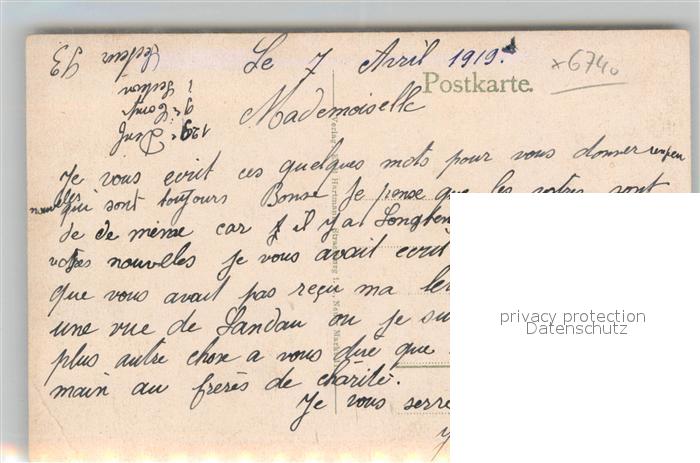 Le 7 Avril 1919
x 6740
Postkarte.
Mademoiselle
Secteur 93
1 Section
9e Comp
129e Div
Je vous ecrit ces quelques mots pour vous donner un peu
nouvelles qui sont toujours Bonne Je pense que les votres sont
de de même car il y a Longtem
votres nouvelles Je vous avait ecrit
que vous avait pas reçu ma le
une vue de Landau ou je su
plus autre chose a vous dire que
main au frerés de charité.
Je vous serre
privacy protection
Datenschutz